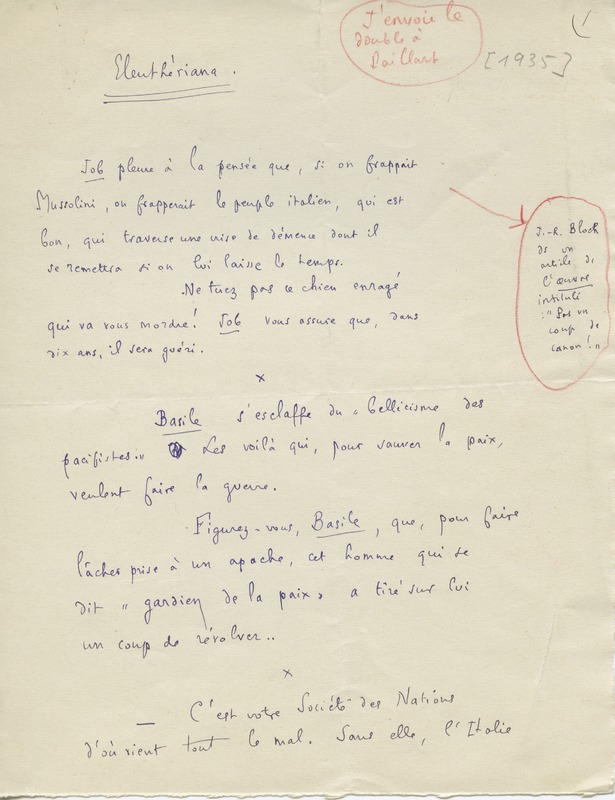 J'envoie le
double à
Paillart
[1935]
Eleuthériana.
Job pleure à la pensée que, si on frappait
Mussolini, on frapperait le peuple italien, qui est
bon, qui traverse une crise de démence dont il
se remettra si on lui laisse le temps.
Ne tuez pas ce chien enragé
qui va vous mordre! Job vous assure que, dans
dix ans, il sera guéri.
J.-R. Bloch
ds un
article de
l'œuvre
intitulé
: "Pas un
coup de
canon!"
x
Basile s'esclaffe du "bellicisme des
pacifistes." Les voilà qui, pour sauver la paix,
veulent faire la guerre.
Figurez-vous, Basile, que, pour faire
lâcher prise à un apache, cet homme qui se
dit "gardien de la paix" a tiré sur lui
un coup de révolver..
x
— C'est votre Société des Nations
d'où vient tout le mal. Sans elle, l'Italie